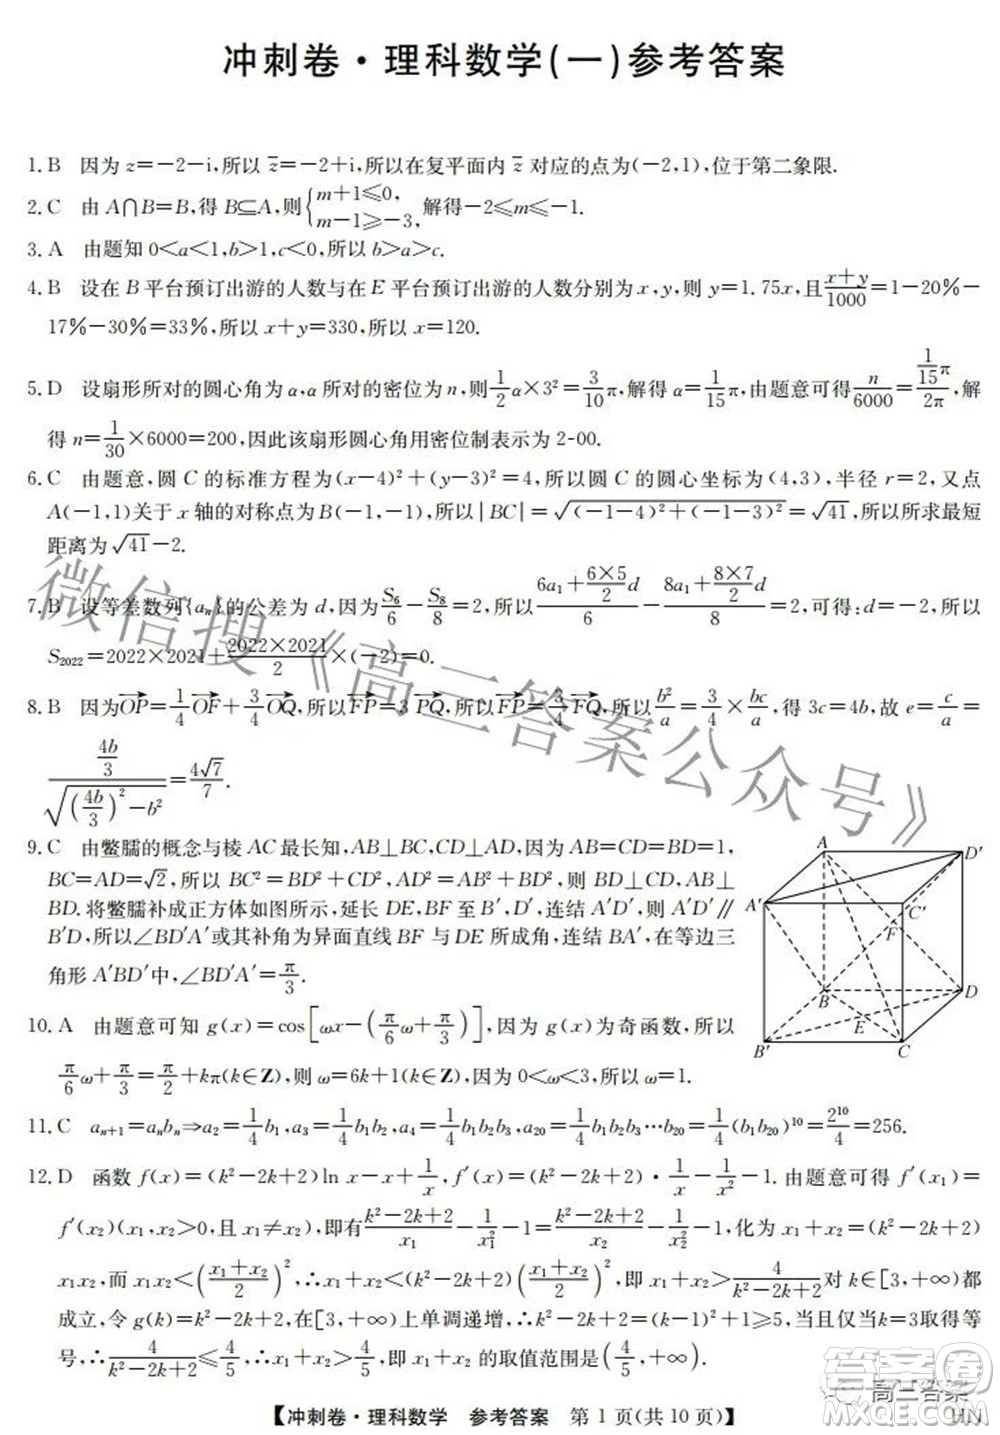 冲刺卷·理科数学(一)参考答案
1.B 因为z=-2-i,所以z̅=-2+i,所以在复平面内z̅对应的点为(-2,1),位于第二象限.
2.C 由A∩B=B,得B⊆A,则{m+1≤0, m-1≥-3, 解得-2≤m≤-1.
3.A 由题知0<a<1,b>1,c<0,所以b>a>c.
4.B 设在B平台预订出游的人数与在E平台预订出游的人数分别为x,y,则y=1.75x,且(x+y)/1000=1-20%-
17%-30%=33%,所以x+y=330,所以x=120.
5.D 设扇形所对的圆心角为α,α所对的密位为n,则1/2α×3²=3/10π,解得α=1/15π,由题意可得n/6000=(1/15π)/2π,解
得n=1/30×6000=200,因此该扇形圆心角用密位制表示为2-00.
6.C 由题意,圆C的标准方程为(x-4)²+(y-3)²=4,所以圆C的圆心坐标为(4,3),半径r=2,又点
A(-1,1)关于x轴的对称点为B(-1,-1),所以|BC|=√((-1-4)²+(-1-3)²)=√41,所以所求最短
距离为√41-2.
7.B 设等差数列{aₙ}的公差为d,因为S₆/6-S₈/8=2,所以(6a₁+(6×5)/2 d)/6-(8a₁+(8×7)/2 d)/8=2,可得:d=-2,所以
S₂₀₂₂=2022×2021+(2022×2021)/2×(-2)=0.
8.B 因为OP→=1/4 OF→+3/4 OQ→,所以FP→=3 所以FP→=3/4 FQ→,所以b²/a=3/4×bc/a,得3c=4b,故e=c/a=
(4b/3)/√((4b/3)²-b²)=4√7/7.
9.C 由鳖臑的概念与棱AC最长知,AB⊥BC,CD⊥AD,因为AB=CD=BD=1,
BC=AD=√2,所以BC²=BD²+CD²,AD²=AB²+BD²,所以BD⊥CD,AB⊥
BD.将鳖臑补成正方体如图所示,延长DE,BF至B′,D′,连结A′D′,则A′D′∥
B′D,所以∠BD′A′或其补角为异面直线BF与DE所成角,连结BA′,在等边三
角形A′BD′中,∠BD′A′=π/3.
A
D′
A′
C′
F
B
D
E
B′
C
10.A 由题意可知g(x)=cos[ωx-(π/6ω+π/3)],因为g(x)为奇函数,所以
π/6ω+π/3=π/2+kπ(k∈Z),则ω=6k+1(k∈Z).因为0<ω<3,所以ω=1.
11.C aₙ₊₁=aₙbₙ⇒a₂=1/4b₁,a₃=1/4b₁b₂,a₄=1/4b₁b₂b₃,a₂₀=1/4b₁b₂b₃…b₂₀=1/4(b₁b₂₀)¹⁰=2¹⁰/4=256.
12.D 函数f(x)=(k²-2k+2)ln x-x+1/x,f′(x)=(k²-2k+2)·1/x-1/x²-1.由题意可得f′(x₁)=
f′(x₂)(x₁,x₂>0,且x₁≠x₂),即有(k²-2k+2)/x₁-1/x₁²-1=(k²-2k+2)/x₂-1/x₂²-1,化为x₁+x₂=(k²-2k+2)
x₁x₂,而x₁x₂<((x₁+x₂)/2)²,∴x₁+x₂<(k²-2k+2)((x₁+x₂)/2)²,即x₁+x₂>4/(k²-2k+2)对k∈[3,+∞)都
成立,令g(k)=k²-2k+2在[3,+∞)上单调递增,∴k²-2k+2=(k-1)²+1≥5,当且仅当k=3取得等
号,∴4/(k²-2k+2)≤4/5,∴x₁+x₂>4/5,即x₁+x₂的取值范围是(4/5,+∞).
【冲刺卷·理科数学 参考答案 第1页(共10页)】
HN
微信搜《高三答案公众号》
高三答案
答案圈
MXQE.COM